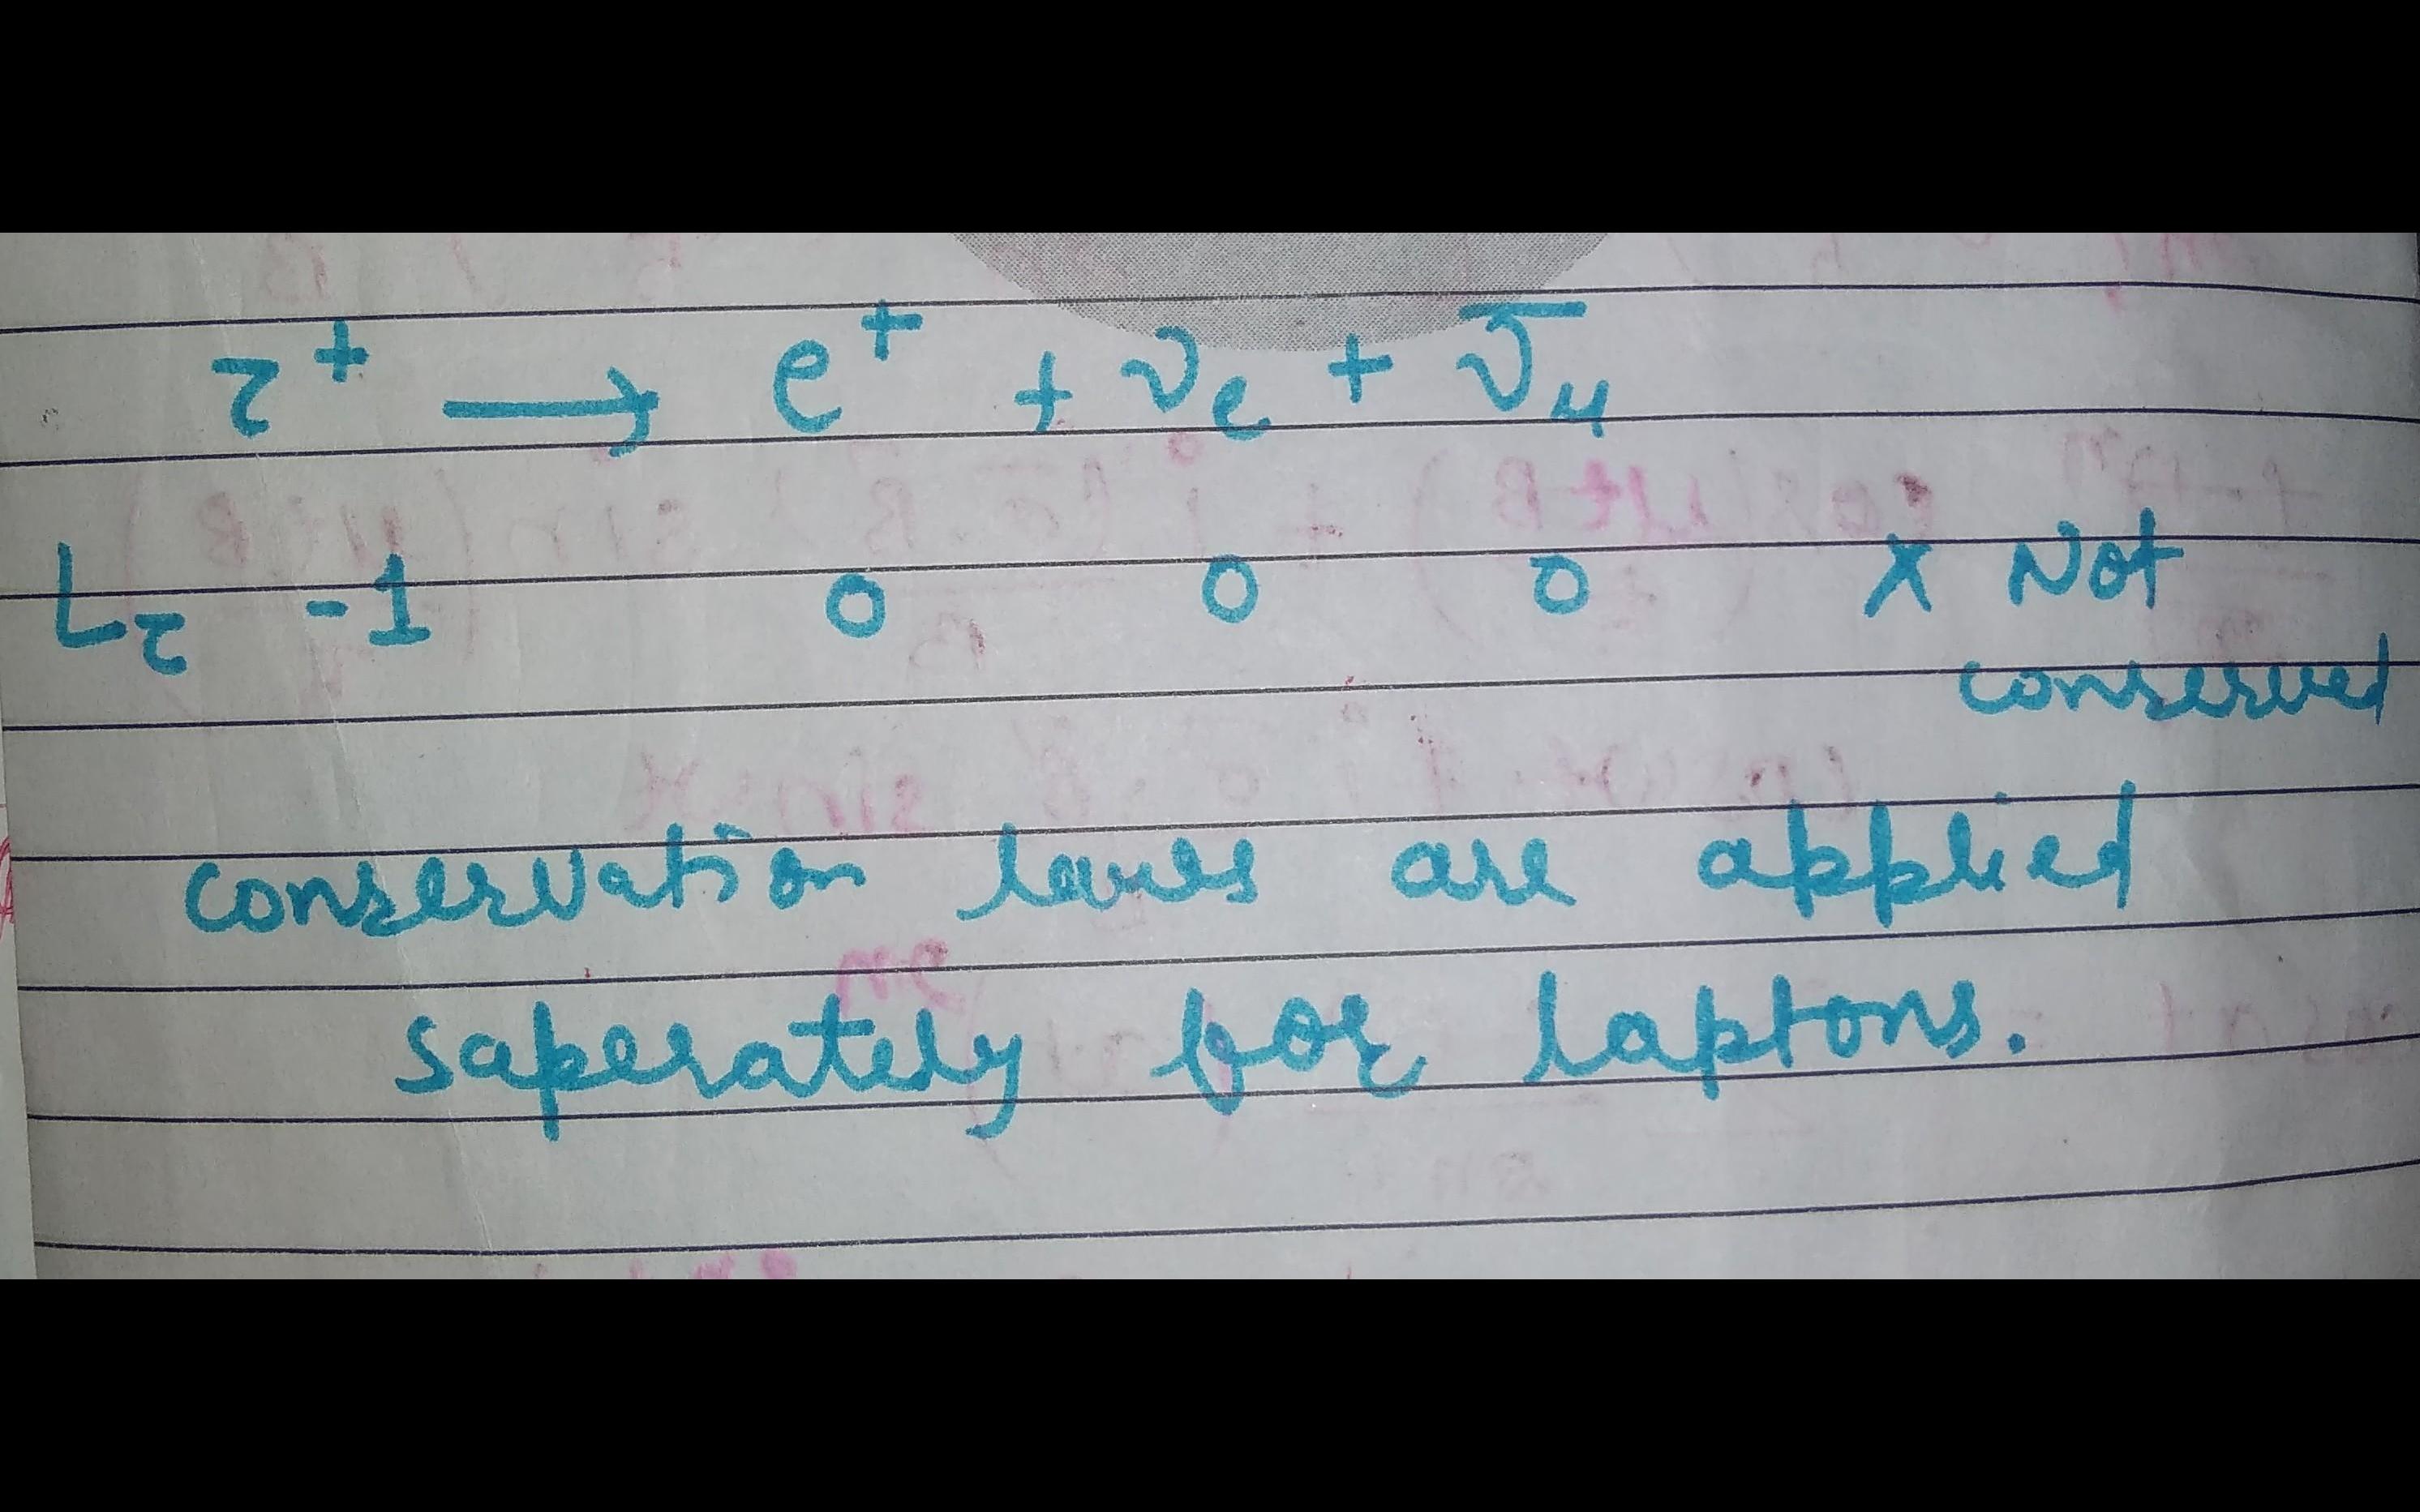 τ⁺ ⟶ e⁺ + νe + ν̅μ
Lτ -1 0 0 0 X Not
conserved
conservation laws are applied
saperately for laptons.